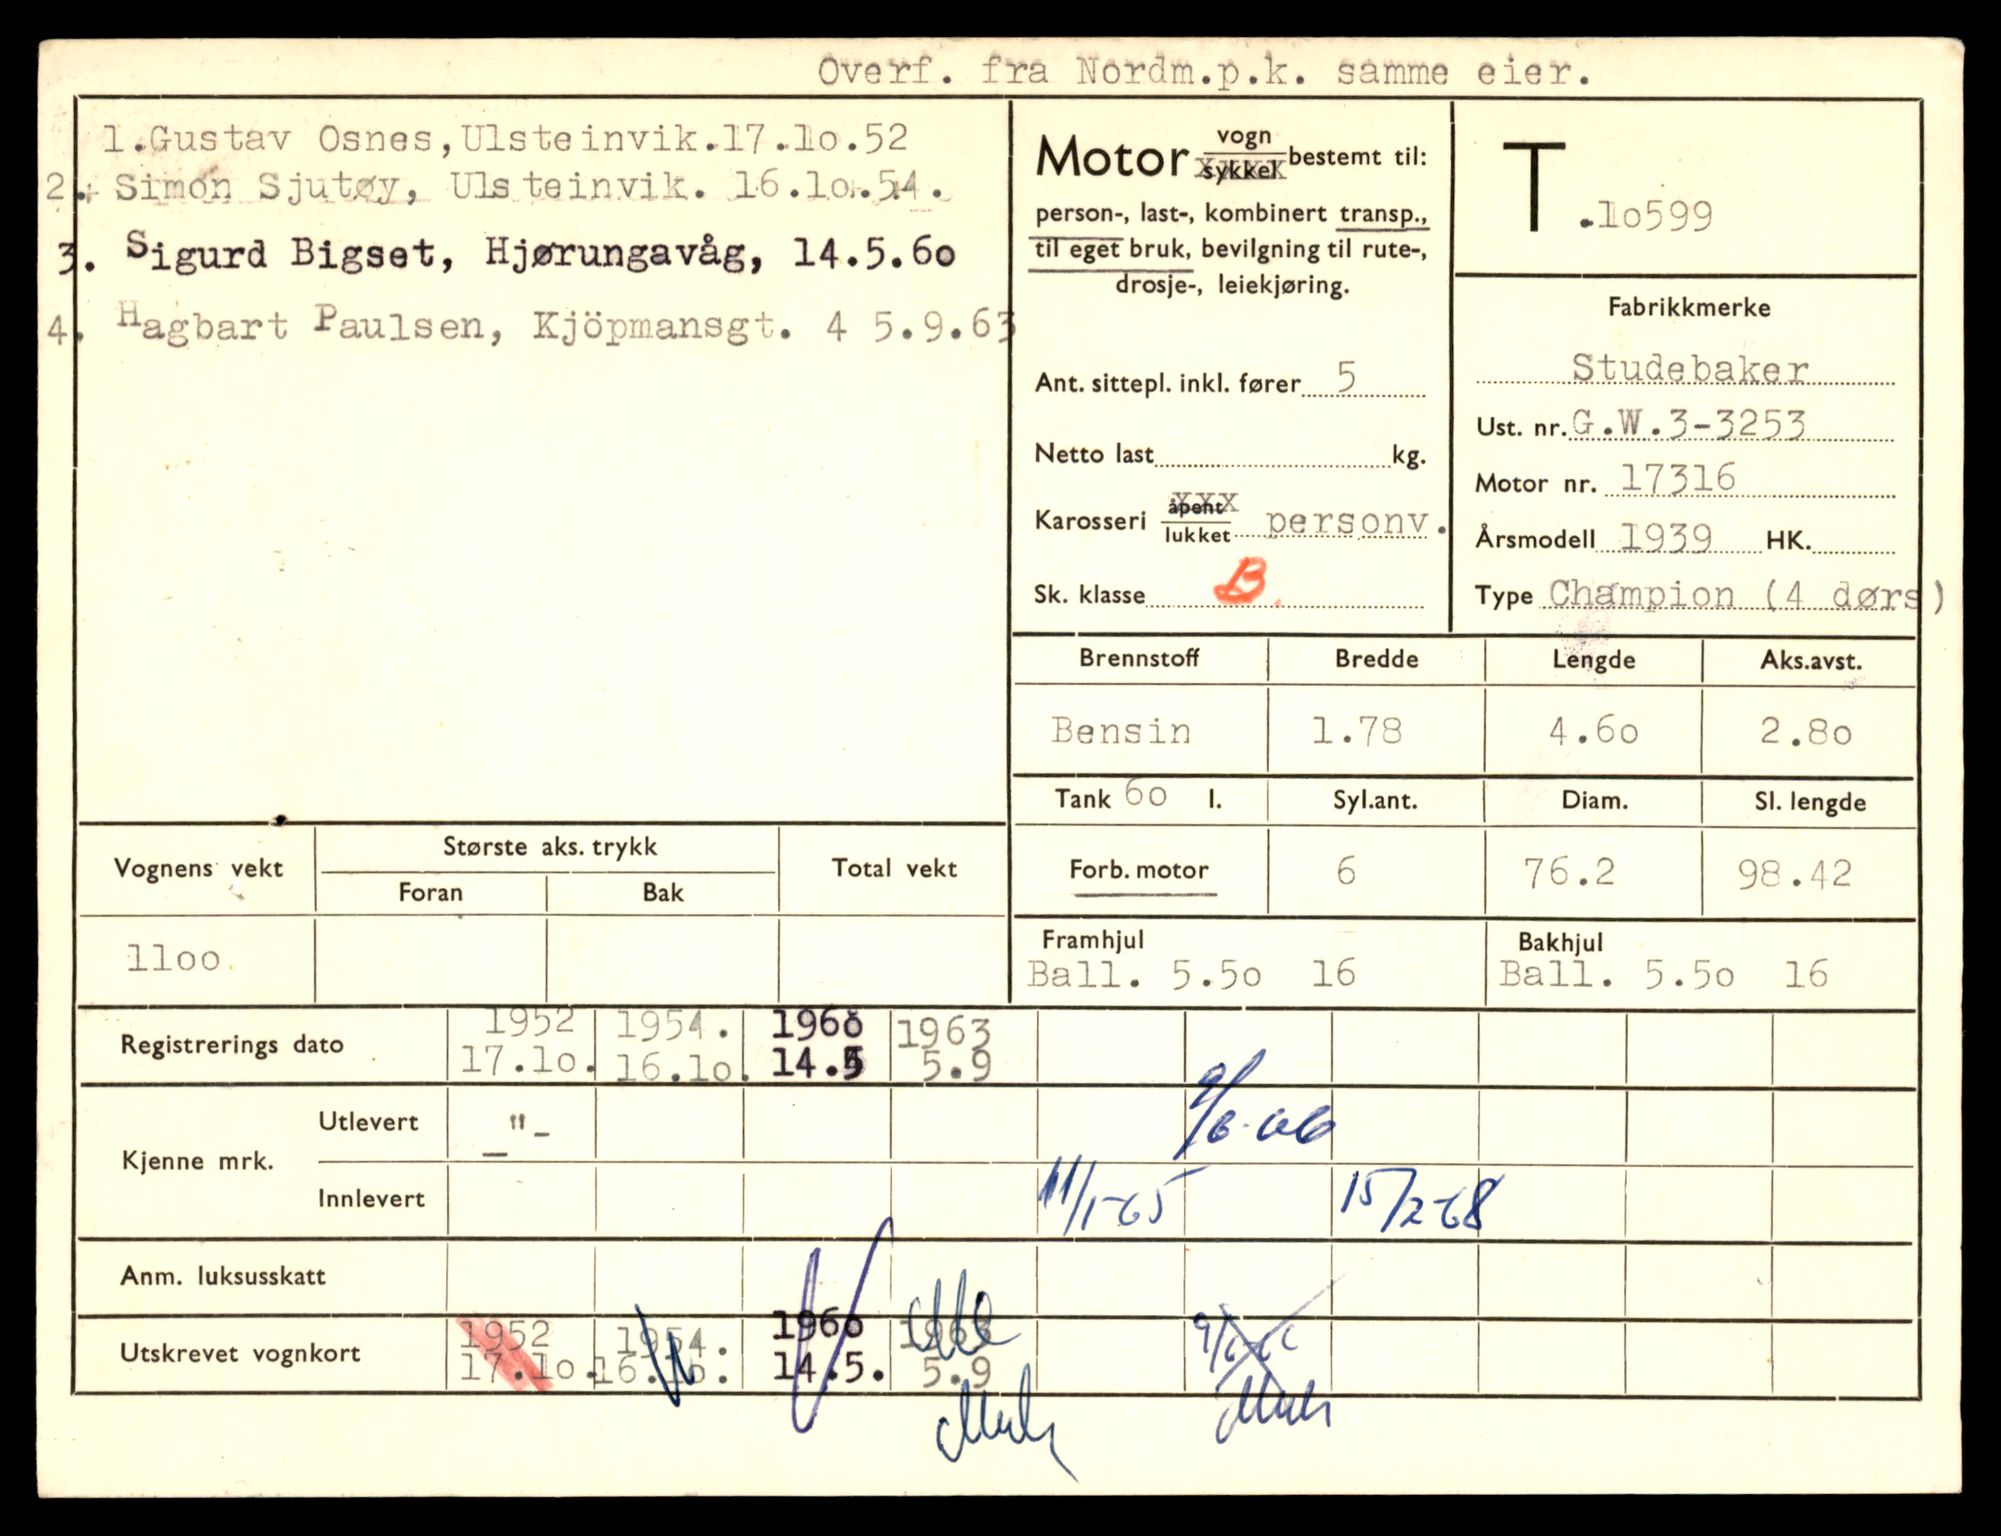 Overf. fra Nordm.p.k. samme eier.
1.Gustav Osnes,Ulsteinvik.17.10.52
2. Simon Sjutøy, Ulsteinvik. 16.10.54.
3. Sigurd Bigset, Hjørungavåg, 14.5.60
4. Hagbart Paulsen, Kjöpmansgt. 4 5.9.63
Motor vogn
sykkel bestemt til:
person-, last-, kombinert transp.,
til eget bruk, bevilgning til rute-,
drosje-, leiekjøring.
Ant. sittepl. inkl. fører 5
Netto last kg.
Karosseri åpent
lukket personv.
Sk. klasse B
T.10599
Fabrikkmerke
Studebaker
Ust. nr. G.W.3-3253
Motor nr. 17316
Årsmodell 1939 HK.
Type Champion (4 dørs)
Brennstoff Bredde Lengde Aks.avst.
Bensin 1.78 4.60 2.80
Tank 60 l. Syl.ant. Diam. Sl. lengde
Forb. motor 6 76.2 98.42
Framhjul Bakhjul
Ball. 5.50 16 Ball. 5.50 16
Vognens vekt Største aks. trykk Total vekt
Foran Bak
1100
Registrerings dato 1952 1954. 1960 1963
17.10. 16.10. 14.5 5.9
Kjenne mrk. Utlevert -"- 9/6-66
Innlevert 11/1-65 15/2-68
Anm. luksusskatt
Utskrevet vognkort 1952 1954. 1960 1963 9/6-66
17.10. 16.10. 14.5. 5.9